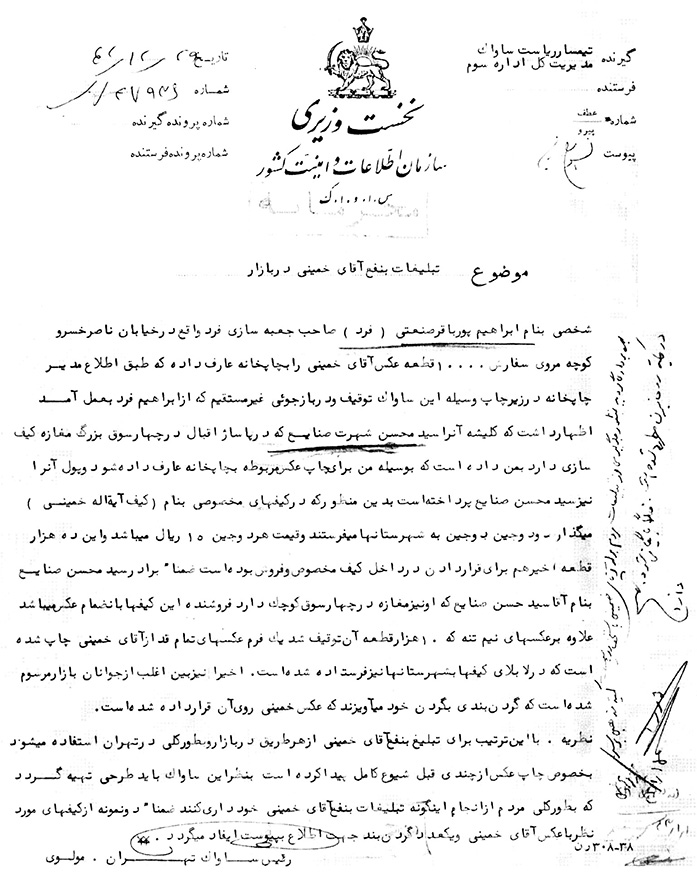 گیرنده تیمسار ریاست ساواك
مدیریت کل اداره سوم
فرستنده
شماره عطف
پیرو
پیوست
تاریخ ۲۹ / ۱۲ /
شماره
شماره پرونده گیرنده
شماره پرونده فرستنده
نخست وزیری
سازمان اطلاعات و امنیت کشور
س.ا.و.ا.ک
موضوع تبلیغات بنفع آقای خمینی در بازار
شخصی بنام ابراهیم پورباقرصنعتی ( فرد ) صاحب جعبه سازی فرد واقع در خیابان ناصرخسرو
کوچه مروی سفارش ۱۰۰۰۰ قطعه عکس آقای خمینی را بچاپخانه عارف داده که طبق اطلاع مدیر
چاپخانه در زیر چاپ وسیله این ساواك توقیف و در بازجوئی غیرمستقیم که از ابراهیم فرد بعمل آمد
اظهار داشت که کلیشه آنرا سید محسن شهرت صنایع که در پاساژ اقبال در چهارسوق بزرگ مغازه کیف
سازی دارد بمن داده است که بوسیله من برای چاپ عکس مربوطه بچاپخانه عارف داده شود و پول آنرا
نیز سید محسن صنایع پرداخته است بدین منظور که در کیفهای مخصوصی بنام ( کیف آیةاله خمینی )
میگذارد و دوجین بدوجین به شهرستانها میفرستند و قیمت هر دوجین ۱۵ ریال میباشد و این ده هزار
قطعه اخیر هم برای قرار دادن در داخل کیف مخصوص و فروش بوده است ضمناً برادر سید محسن صنایع
بنام آقا سید حسن صنایع که او نیز مغازه در چهارسوق کوچك دارد فروشنده این کیفها بانضمام عکس میباشد
علاوه بر عکسهای نیم تنه که ۱۰ هزار قطعه آن توقیف شد یك فرم عکسهای تمام قد از آقای خمینی چاپ شده
است که در لابلای کیفها بشهرستانها نیز فرستاده شده است. اخیرا نیز بین اغلب از جوانان بازار مرسوم
شده است که گردن بندی بگردن خود میآویزند که عکس خمینی روی آن قرار داده شده است.
نظریه . با این ترتیب برای تبلیغ بنفع آقای خمینی از هر طریق در بازار و بطور کلی در تهران استفاده میشود
بخصوص چاپ عکس از چندی قبل شیوع کامل پیدا کرده است بنظر این ساواك باید طرحی تهیه گردد
که بطور کلی مردم از انجام اینگونه تبلیغات بنفع آقای خمینی خود داری کنند ضمناً دو نمونه از کیفهای مورد
نظر با عکس آقای خمینی و یکعدد گردن بند جهت اطلاع بپیوست ایفاد میگردد . **
رئیس ساواك تهران . مولوی
۳۰۸-۳۸